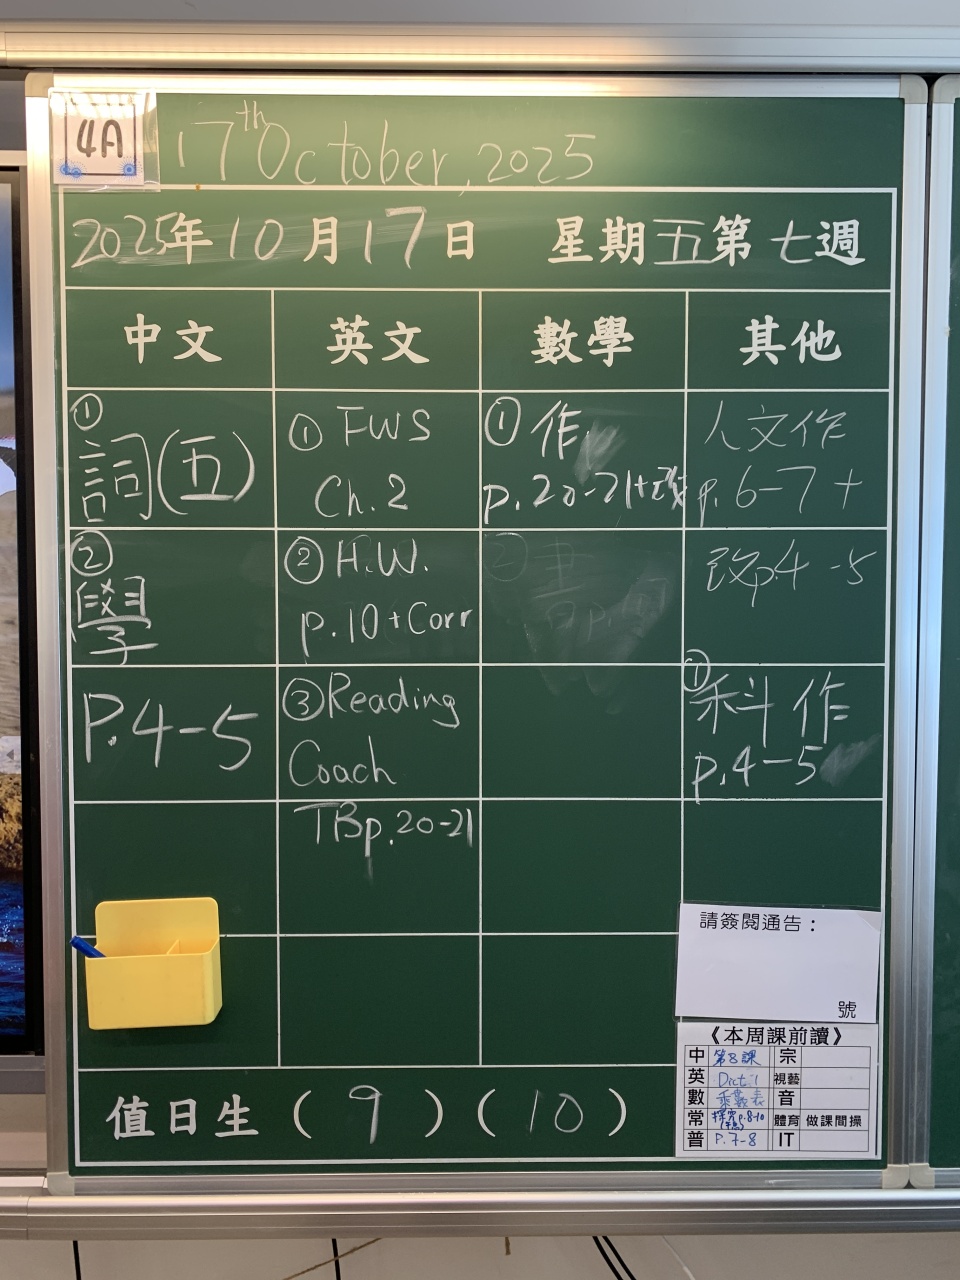 4A
17th October, 2025
2025年10月17日 星期五第七週
中文
英文
數學
其他
①
詞(五)
②
學
P.4-5
① FWS
Ch.2
② H.W.
p.10+Corr
③Reading
Coach
TBp.20-21
① 作
p.20-21+改
人文作
p.6-7+
改p.4-5
①
科作
p.4-5
請簽閱通告：
號
《本周課前讀》
中 第8課 宗
英 Dict.1 視藝
數 乘數表 音
常 p.8-10 體育 做課間操
普 P.7-8 IT
值日生 (9) (10)